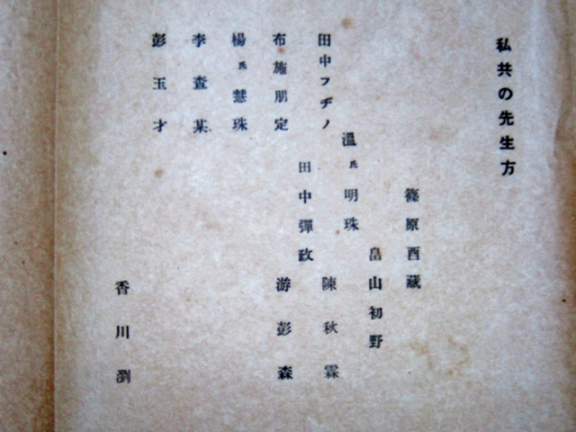 私共の先生方
篠原酉蔵
畠山初野
温氏明珠
陳秋霖
田中フヂノ
田中彈政
游彭森
布施朋定
楊氏慧珠
李查某
彭玉才
香川瀏